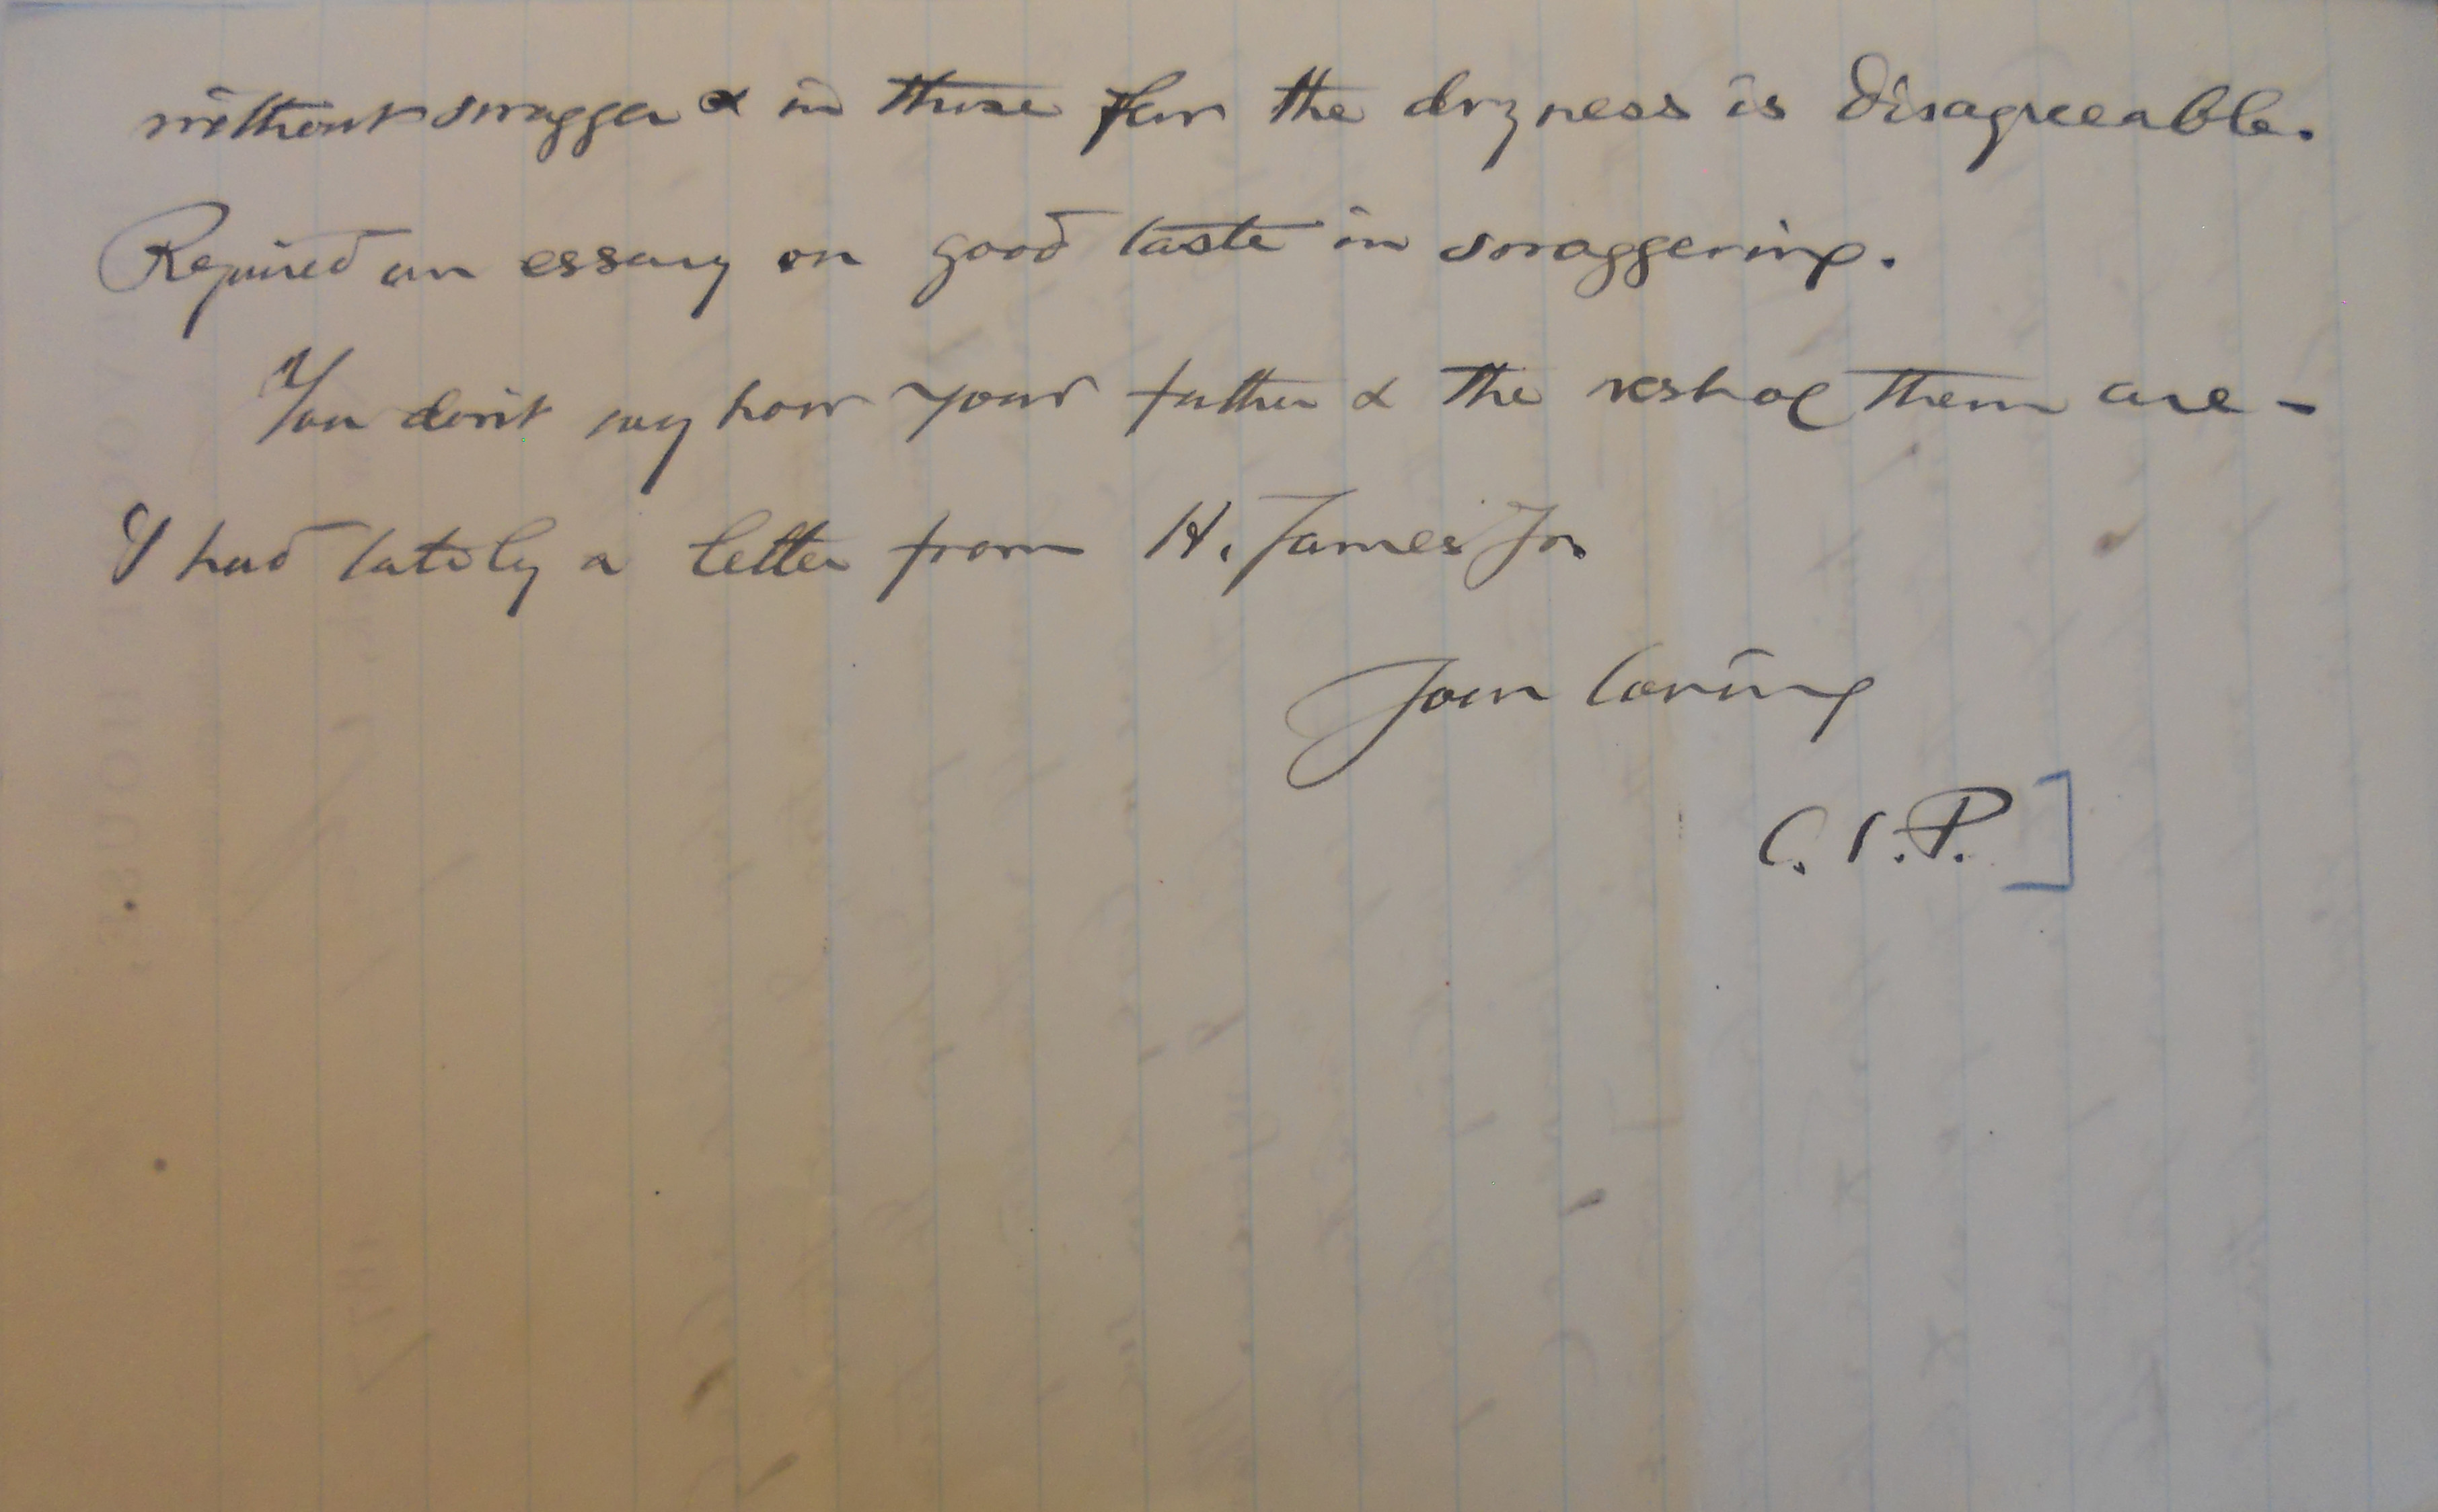 without swagger & in those few the dryness is disagreeable.
Required an essay on good taste in swaggering.
You don't say how your father & the rest of them are -
I had lately a letter from H. James Jr.
Your loving
C. S. P.]